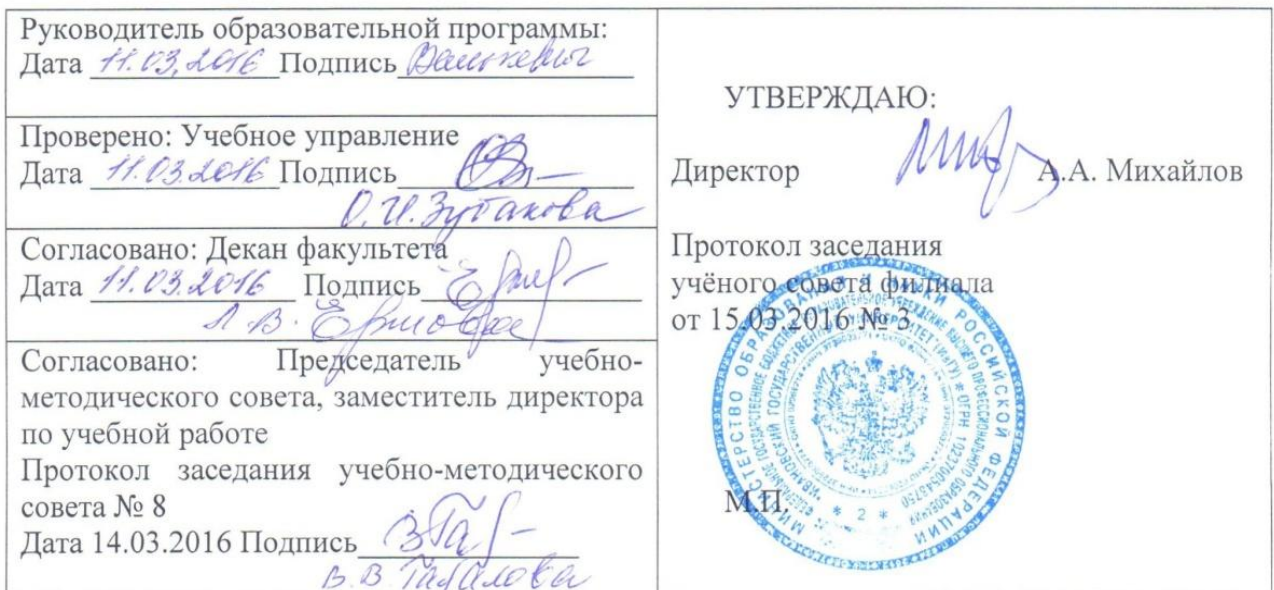 Руководитель образовательной программы:
Дата 11.03.2016 Подпись
Проверено: Учебное управление
Дата 11.03.2016 Подпись
О.И. Зубакова
Согласовано: Декан факультета
Дата 11.03.2016 Подпись
Л.В. Ершова
Согласовано: Председатель учебно-
методического совета, заместитель директора
по учебной работе
Протокол заседания учебно-методического
совета № 8
Дата 14.03.2016 Подпись
УТВЕРЖДАЮ:
Директор А.А. Михайлов
Протокол заседания
учёного совета филиала
от 15.03.2016 № 3
М.П.
МИНИСТЕРСТВО ОБРАЗОВАНИЯ И НАУКИ РОССИЙСКОЙ ФЕДЕРАЦИИ
* 2 *